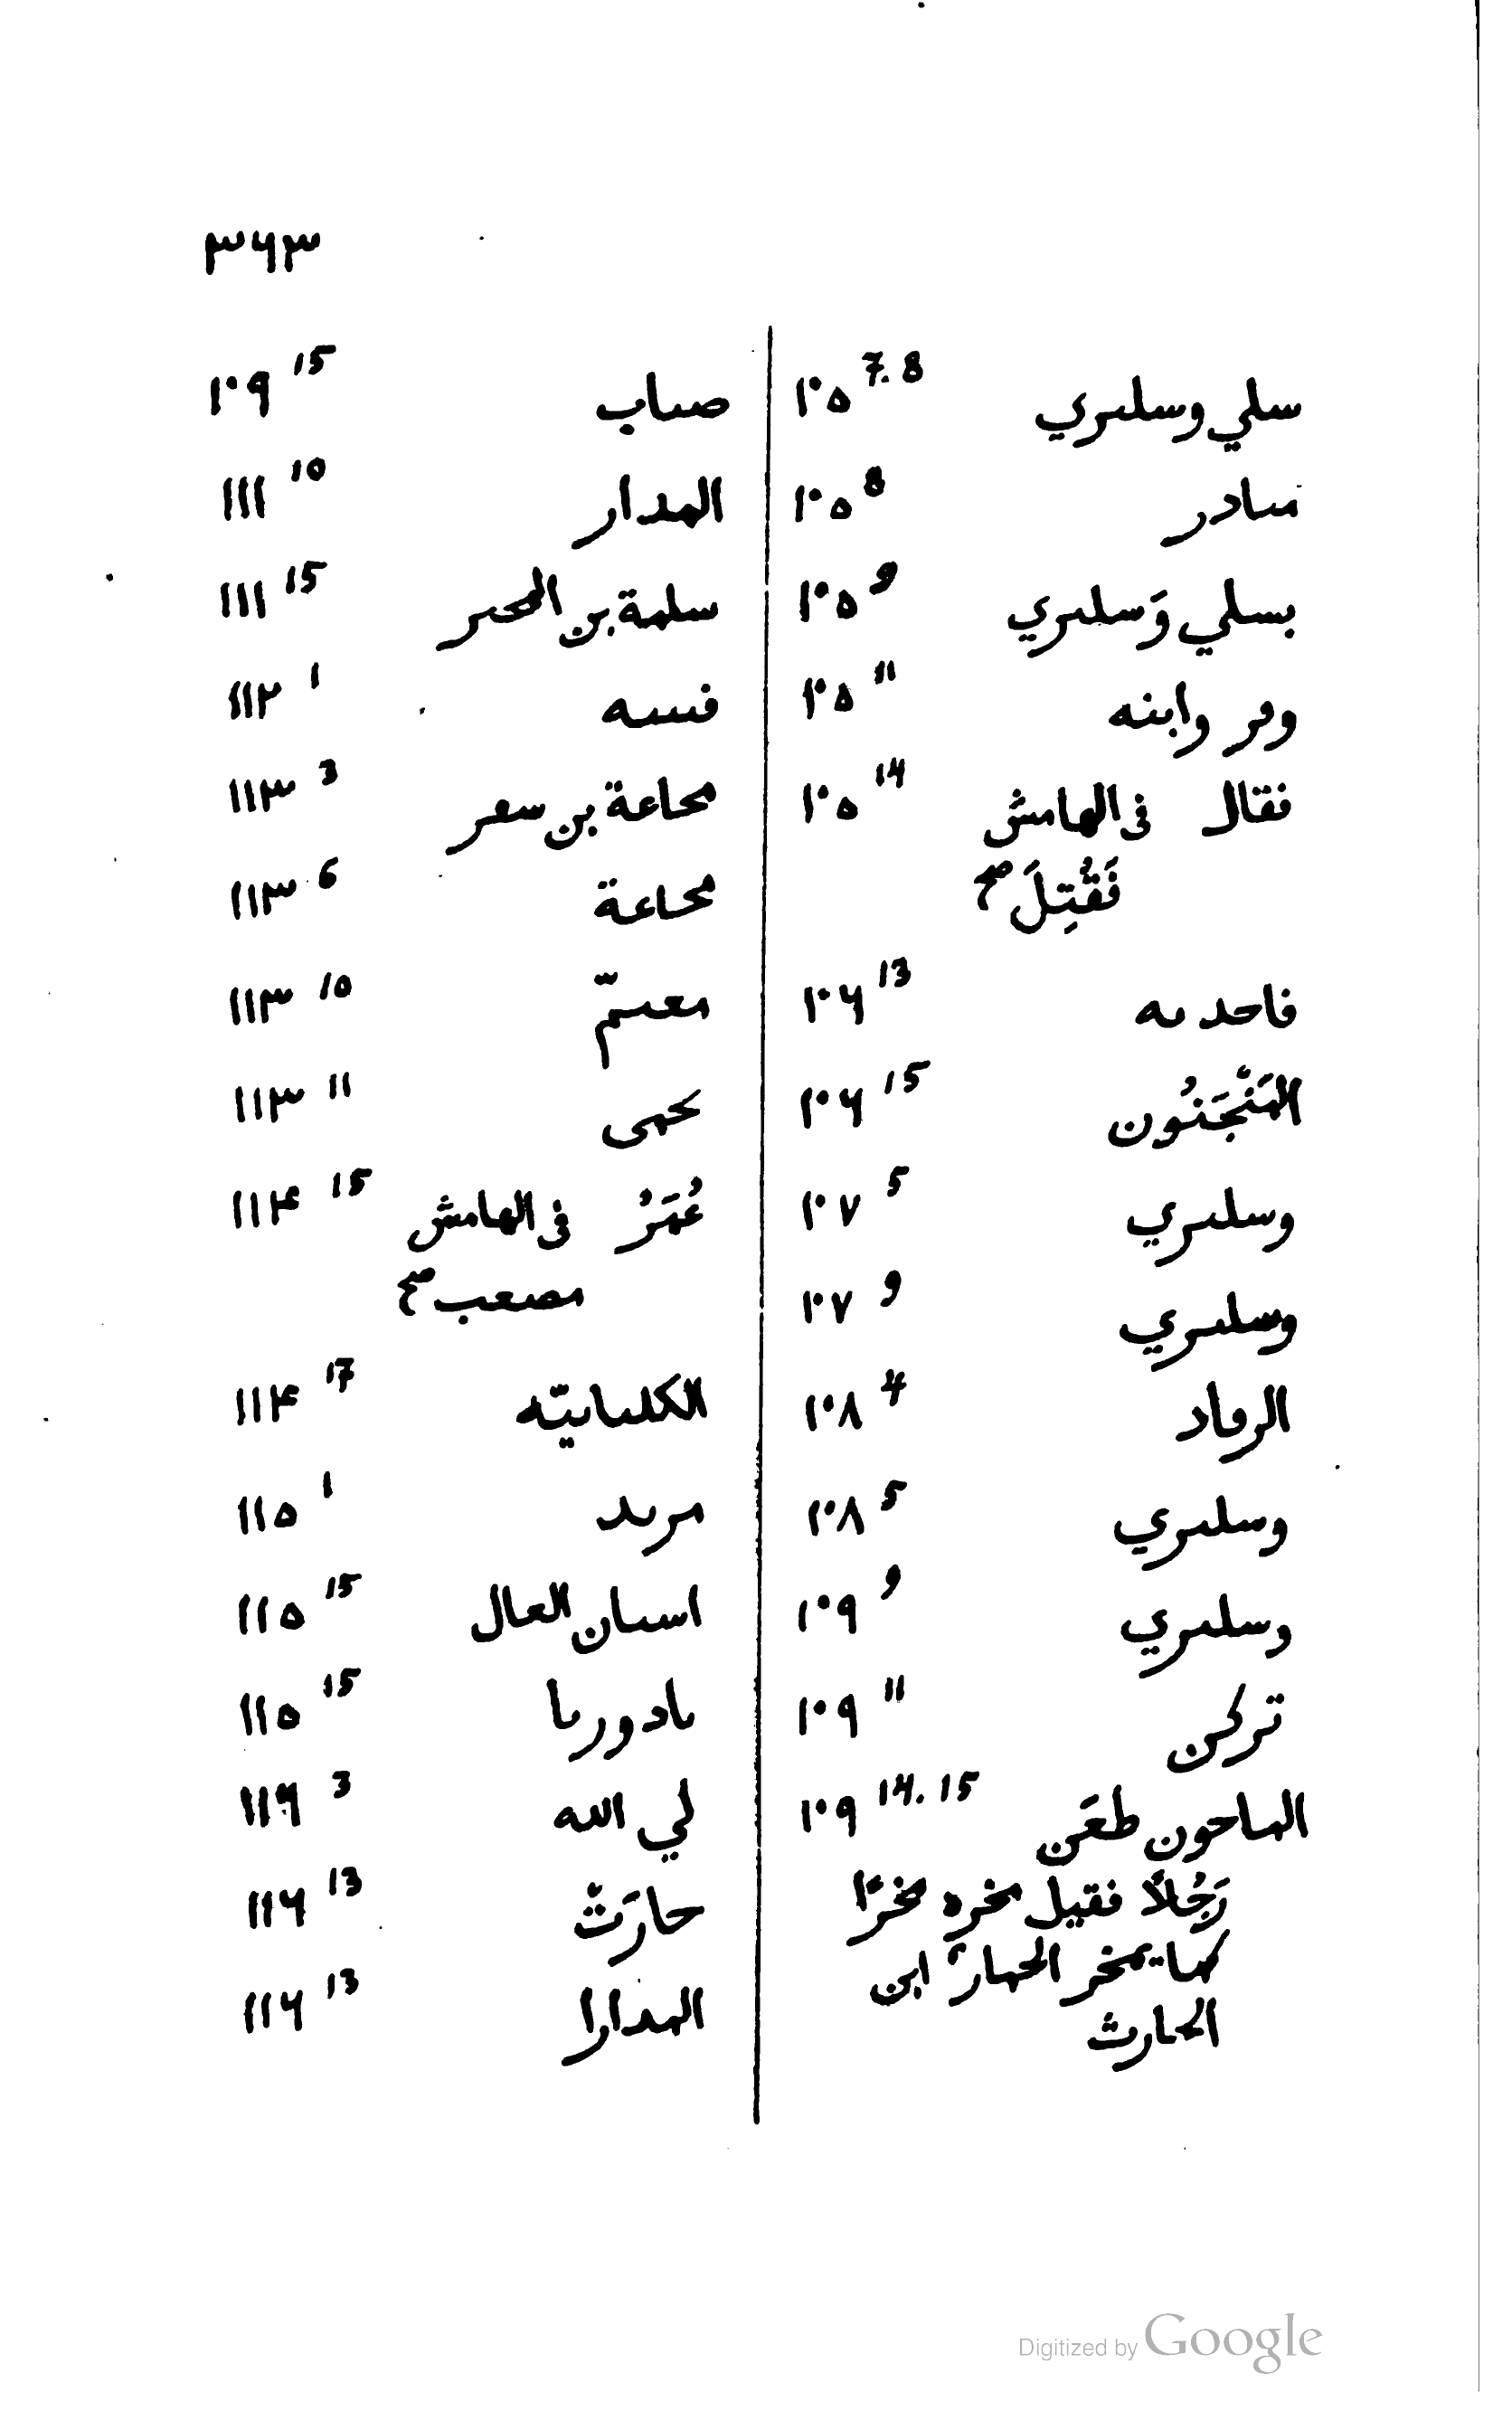 ٣٦٣
سلي وسلٮري ١٠٥ 7.8
ٮىادر ١٠٥ 8
بسلي وَسلٮري ١٠٥ 9
وڡر وابنه ١٠٥ 11
فقال فى الهامش ١٠٥ 14
فَقُتِلَ صح
فاحدٮه ١٠٦ 13
المَنْجَنُون ١٠٦ 15
وسلٮري ١٠٧ 5
وسلٮري ١٠٧ 9
الرڡاد ١٠٨ 4
وسلٮري ١٠٨ 5
وسلٮري ١٠٩ 9
تركن ١٠٩ 11
الماحون طعَن ١٠٩ 14.15
رَجُلاً فقيل مخره مخرًا
كما يمخر الحمار ابن
الحارث
صٮاب ١٠٩ 15
المدار ١١١ 10
سلمة بن المحٮر ١١١ 15
فٮسه ١١٢ 1
محاعة بن سعر ١١٣ 3
محاعة ١١٣ 6
معٮمّ ١١٣ 10
ٮحيى ١١٣ 11
عُمَرُ فى الهامش ١١۴ 15
مصعب صح
الكلٮاٮيّه ١١۴ 17
مرٮد ١١٥ 1
اسٮان العال ١١٥ 15
ٮادورٮا ١١٥ 15
لي الله ١١٦ 3
حارَث ١١٦ 13
المدارا ١١٦ 13
Digitized by Google